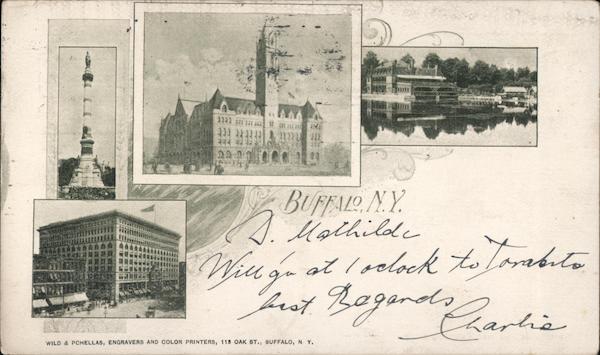 BUFFALO, N.Y.
D. Mathilde
Will go at 1 oclock to Toronto
best Regards
Charlie
WILD & PCHELLAS, ENGRAVERS AND COLOR PRINTERS, 115 OAK ST., BUFFALO, N. Y.